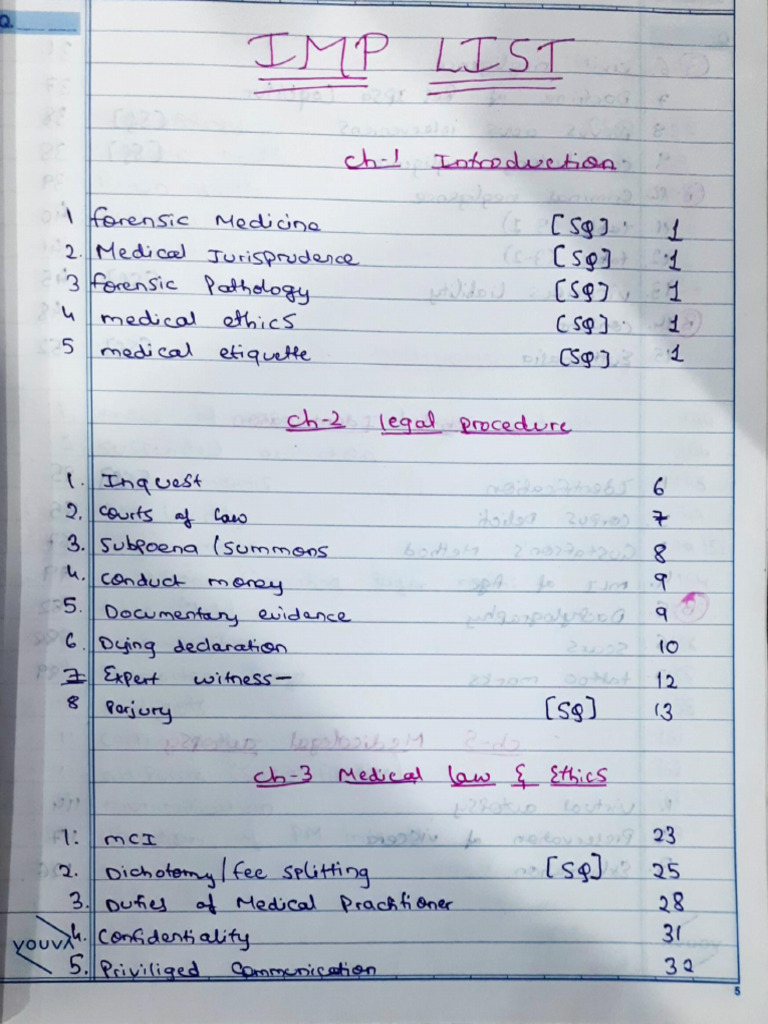 Q.
IMP LIST
Ch-1 Introduction
1 Forensic Medicine [SQ] 1
2. Medical Jurisprudence [SQ] 1
3 Forensic Pathology [SQ] 1
4 medical ethics [SQ] 1
5 medical etiquette [SQ] 1
Ch-2 legal procedure
1. Inquest 6
2. Courts of law 7
3. Subpoena / Summons 8
4. Conduct money 9
5. Documentary evidence 9
6. Dying declaration 10
7 Expert witness- 12
8 Perjury [SQ] 13
Ch-3 Medical law & Ethics
1. MCI 23
2. Dichotomy / fee splitting [SQ] 25
3. Duties of Medical Practitioner 28
4. Confidentiality 31
5. Priviliged Communication 32
youva
5